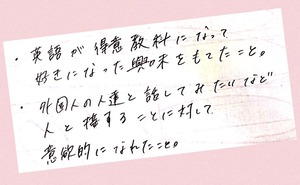 ・英語が得意教科になって
好きになった興味をもてたこと。
・外国人の人達と話してみたいなど
人と接することに対して
意欲的になれたこと。